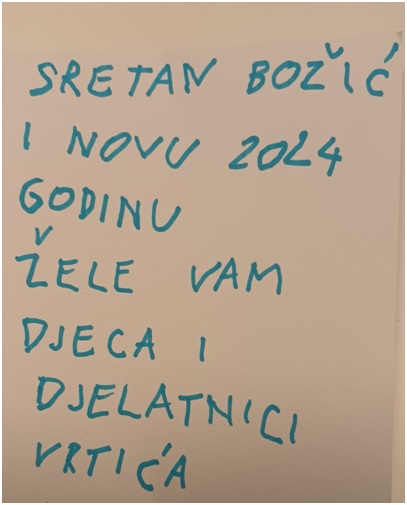 SRETAN BOŽIĆ
I NOVU 2024
GODINU
ŽELE VAM
DJECA I
DJELATNICI
VRTIĆA